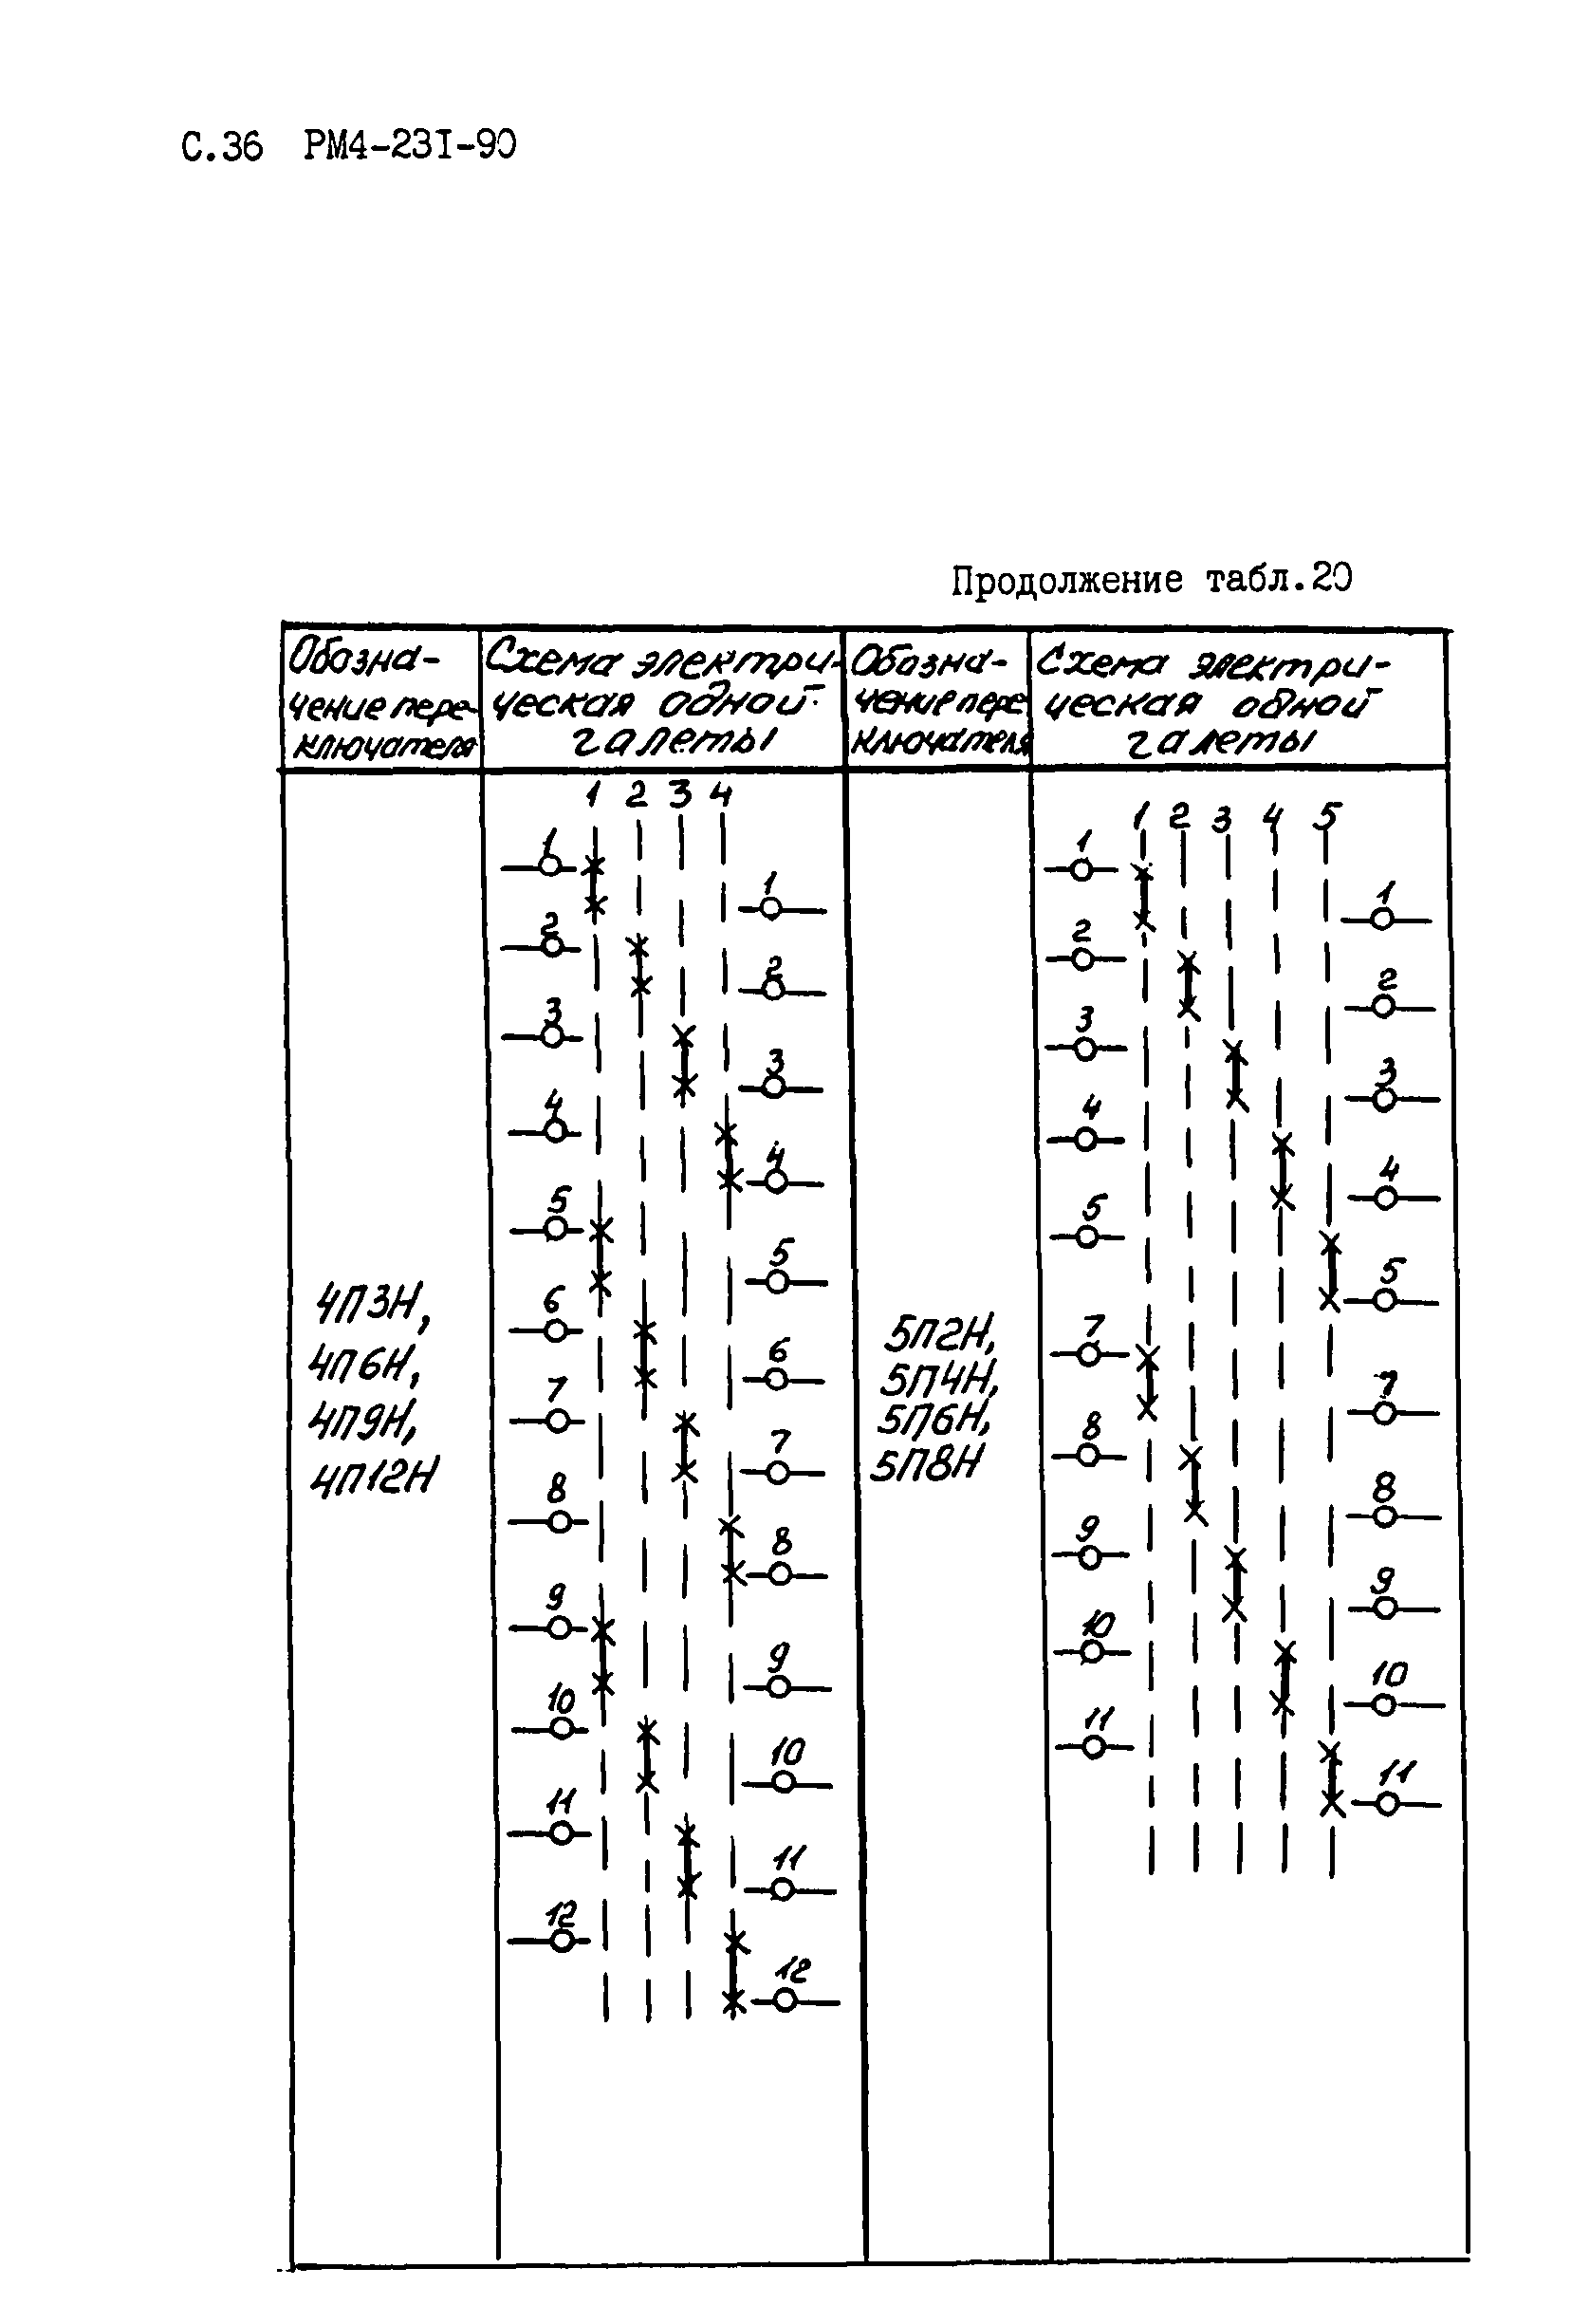 С.36 РМ4-231-90
Продолжение табл.20
Обозна-
чение пере-
ключателя
Схема электри-
ческая одной
галеты
Обозна-
чение пере-
ключателя
Схема электри-
ческая одной
галеты
4П3Н,
4П6Н,
4П9Н,
4П12Н
1 2 3 4
1
1
2
2
3
3
4
4
5
5
6
6
7
7
8
8
9
9
10
10
11
11
12
12
5П2Н,
5П4Н,
5П6Н,
5П8Н
1 2 3 4 5
1
1
2
2
3
3
4
4
5
5
7
7
8
8
9
9
10
10
11
11